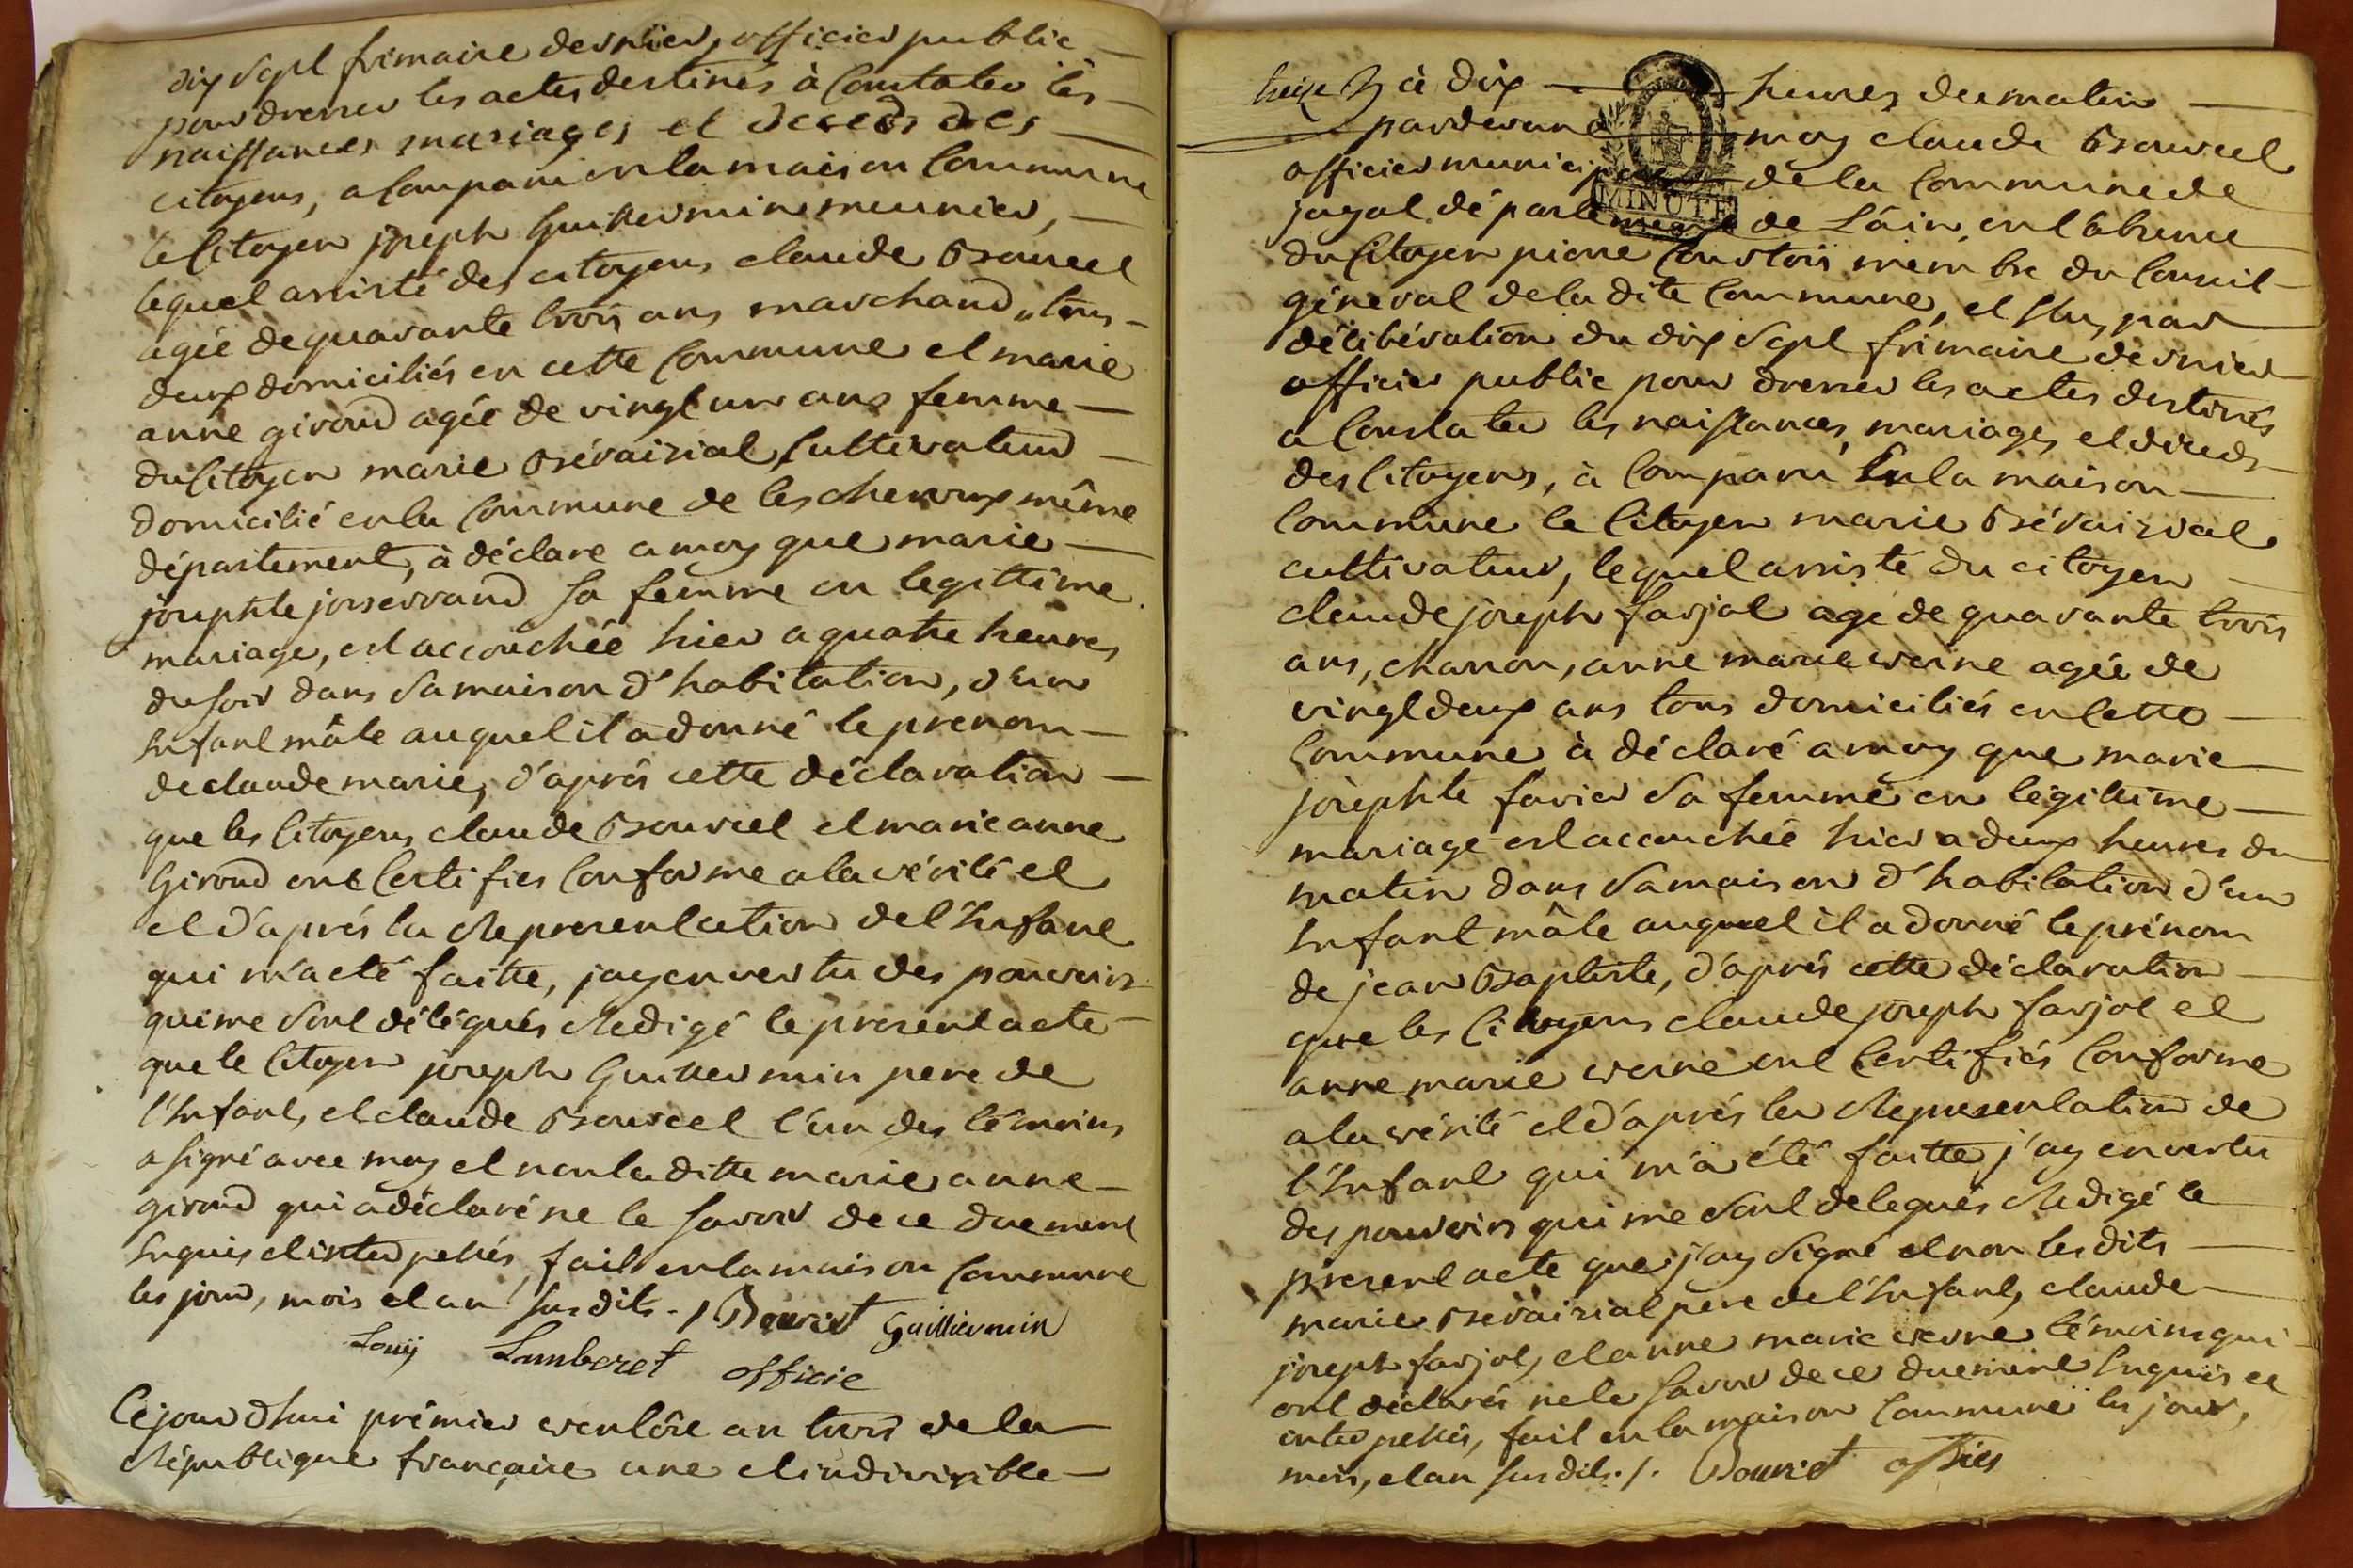 dix sept frimaire dernier, officier public
pour dresser les actes destinés à Constater les
naissances mariages et décèds des
citoyens, a Comparu en la maison Commune
le Citoyen joseph Guillermin meunier,
lequel assisté des citoyens claude Bourcel
agée de quarante trois ans marchand, tous
deux domiciliés en cette Commune et marie
anne giroud agée de vingt un ans femme
du Citoyen marie Brévairial, Cultivateur
domicilié en la Commune de lescheroux même
département, à déclare a moy que marie
josephte josserrand sa femme en legittime
mariage, est accouchée hier a quatre heures
du soir dans sa maison d'habitation, d'un
Enfant mâle auquel il a donné le prenom
de claude marie, d'aprés cette déclaration
que les Citoyens claude Bourcel et marie anne
Giroud ont Certifies Conforme a la vérité et
et d'aprés la Representation de l'Enfant
qui m'a eté faitte, jay en vertu des pouvoirs
qui me sont délégués Redigé le present acte
que le Citoyen joseph Guillermin pere de
l'Enfant, et claude Bourcel l'un des témoins
a signé avec moy et non la ditte marie anne
giroud qui a déclaré ne le savoir de ce duement
Enquis et interpellés, fait en la maison Commune
les jour, mois et an susdits. / Bourcet Guilliermin
Louij Lumberet officie
Cejourd'hui prémier ventôse an trois de la
République françaire une et indivisible
à dix heures du matin
pardevant moy claude Bourcel
officier municipal de la Commune de
jayat département de L'ain, en l'absence
du Citoyen pierre Coustoii membre du Conseil
géneral de la dite Commune, et Elu, par
délibération du dix sept frimaire dernier
officier public pour dresser les actes destinés
a Constater les naissances, mariages, et décèds
des Citoyens, à Comparu En la maison
Commune le Citoyen marie Brévairial
cultivateur, lequel assisté du citoyen
claude joseph farjot age de quarante trois
ans, charron, anne marie verne agée de
vingt deux ans tous domiciliés en Cette
Commune à déclaré a moy que marie
josephte favier sa femme en légittime
mariage est accouchée hier a deux heures du
matin dans sa maison d'habitation d'un
Enfant mâle auquel il a donné le prénom
de jean Baptiste, d'aprés cette déclaration
que les Citoyens claude joseph farjot et
anne marie verne ont Certifiés Conforme
a la vérité et d'aprés la Representation de
l'Enfant qui m'a été faitte, j'ay en vertu
des pouvoirs qui me sont delegués Redigé le
present acte que j'ay signé et non les dits
marie Brévairial pere de l'Enfant, claude
joseph farjot, et anne marie verne témoins qui
ont déclarés ne le savoir de ce duement Enquis et
interpellés, fait en la maison Commune les jour,
mois, et an susdits. /. Bourcet
MINUTE